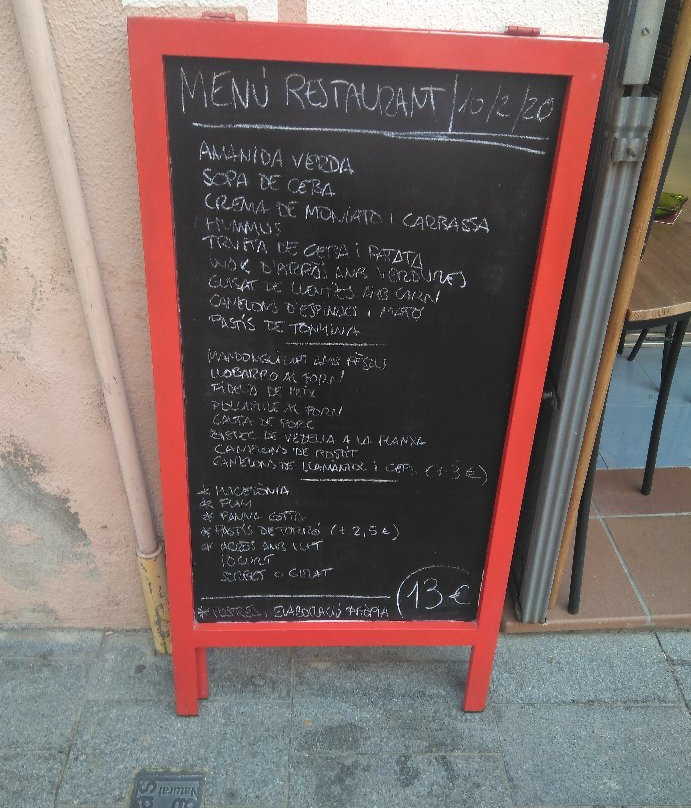 MENÚ RESTAURANT/10/2/20
AMANIDA VERDA
SOPA DE CEBA
CREMA DE MONIATO I CARBASSA
HUMMUS
TRUITA DE CEBA I PATATA
WOK D'ARRÒS AMB VERDURES
CUINAT DE LLENTIES AMB CARN
CANELONS D'ESPINACS I MATÓ
PASTÍS DE TONYINA
MANDONGUILLES AMB PÈSOLS
LLOBARRO AL FORN
FIDEUS DE PEIX
AL FORN
GALTA DE PORC
BISTEC DE VEDELLA A LA PLANXA
CANELONS DE ROSTIT
CANELONS DE LLAMANTOL I CEPS (+3€)
* MACEDÒNIA
* FLAM
* PANNA COTTA
* PASTÍS DE TORRÓ (+2,5€)
* ARRÒS AMB LLET
IOGURT
SORBET O GELAT
13€
* POSTRES, ELABORACIÓ PRÒPIA